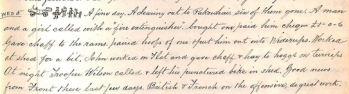 WED 5 A fine day. A cleaning out to six of them gone! A man
and a girl called with a "fire extinguisher" bought one, paid him cheque £5-0-6
Gave chaff to the rams, paired hoofs of one & put them out onto Worked
at shed for a bit. John worked on Flat and gave chaff & hay to hoggs on turnips
At night Trooper Wilson called & left his bike in shed. Good news
from Front these last few days British & French on the offensive, & great work.